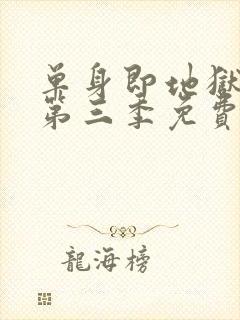 单身即地獄
第三季免費
龍海榜